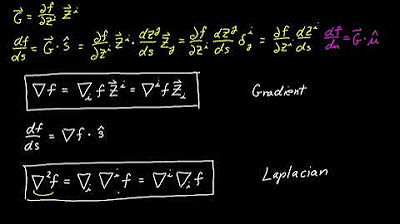 G⃗ = ∂f/∂Zⁱ Z⃗ⁱ
df/ds = G⃗ · ŝ = ∂f/∂Zⁱ Z⃗ⁱ · dZʲ/ds Z⃗ⱼ = ∂f/∂Zⁱ dZʲ/ds δⱼⁱ = ∂f/∂Zⁱ dZⁱ/ds df/du = G⃗ · û
∇f = ∇ᵢ f Z⃗ⁱ = ∇ⁱ f Z⃗ᵢ Gradient
df/ds = ∇f · ŝ
∇²f = ∇ᵢ ∇ⁱ f = ∇ⁱ ∇ᵢ f Laplacian